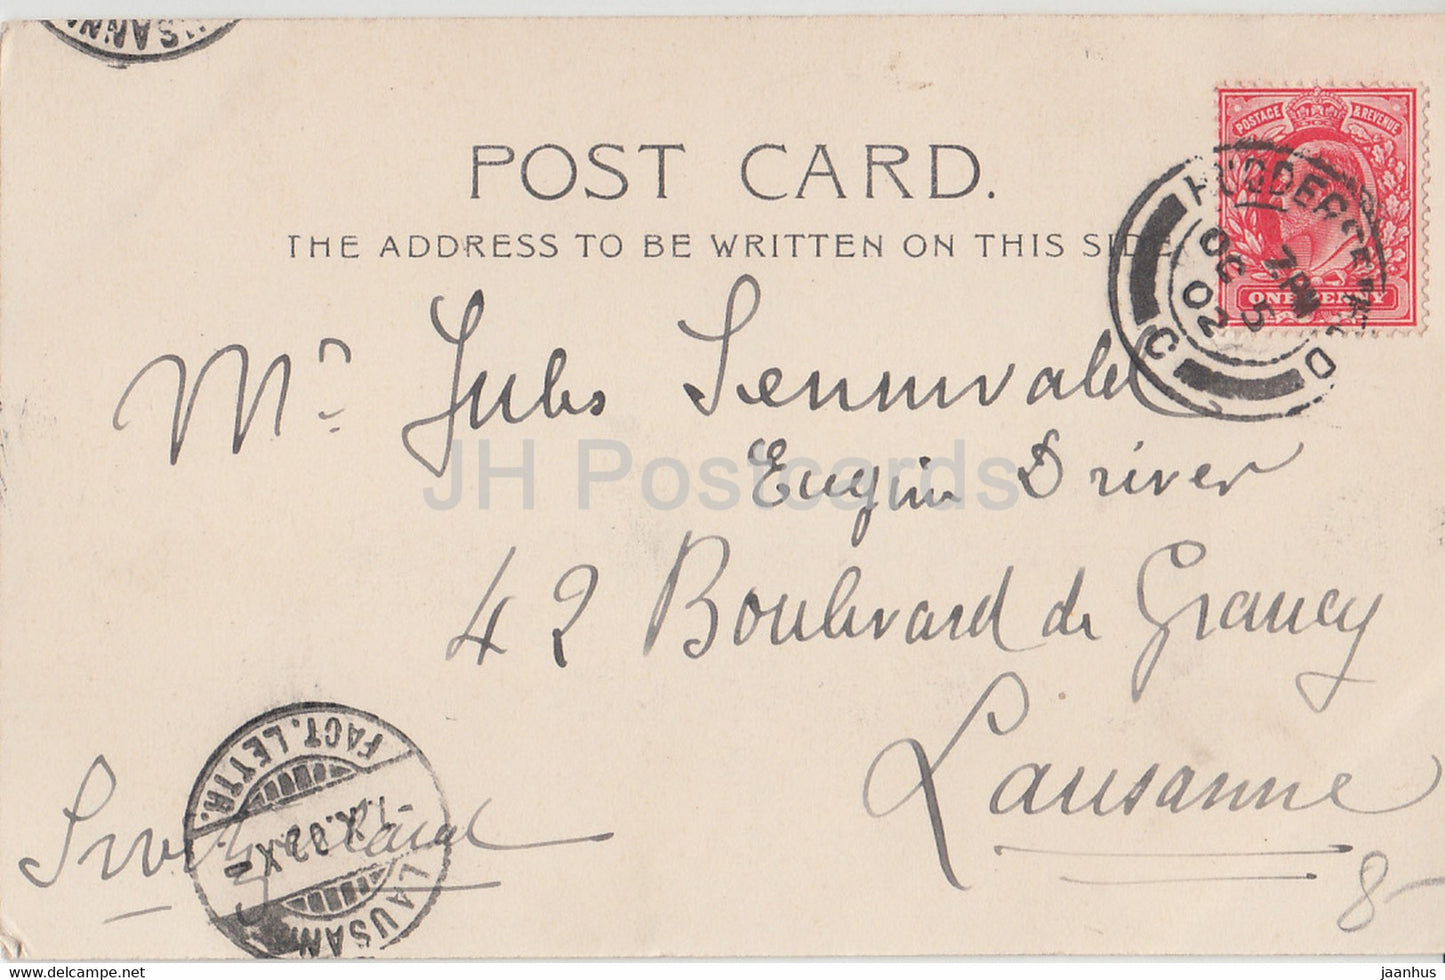 POST CARD.
THE ADDRESS TO BE WRITTEN ON THIS SIDE
POSTAGE & REVENUE
ONE PENNY
HUDDERSFIELD
7 PM
OC 5
02
C
Mr. Jules Sennwald
Engin Driver
42 Boulevard de Grancy
Lausanne
Switzerland
FACT. LETTR.
-7.X.02.X
LAUSANN
8-
JH Postcards
jaanhus
www.hippostcard.com